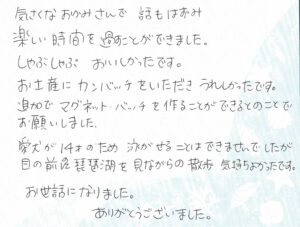 気さくなおかみさんで 話もはずみ
楽しい時間を過すことができました。
しゃぶしゃぶ おいしかったです。
お土産に カンバッチをいただき うれしかったです。
追加で マグネットバッチを作ることができるとのことで
お願いしました。
愛犬が14才のため 泳がせることはできませんでしたが
目の前を琵琶湖を見ながらの散歩 気持ちよかったです。
お世話になりました。
ありがとうございました。